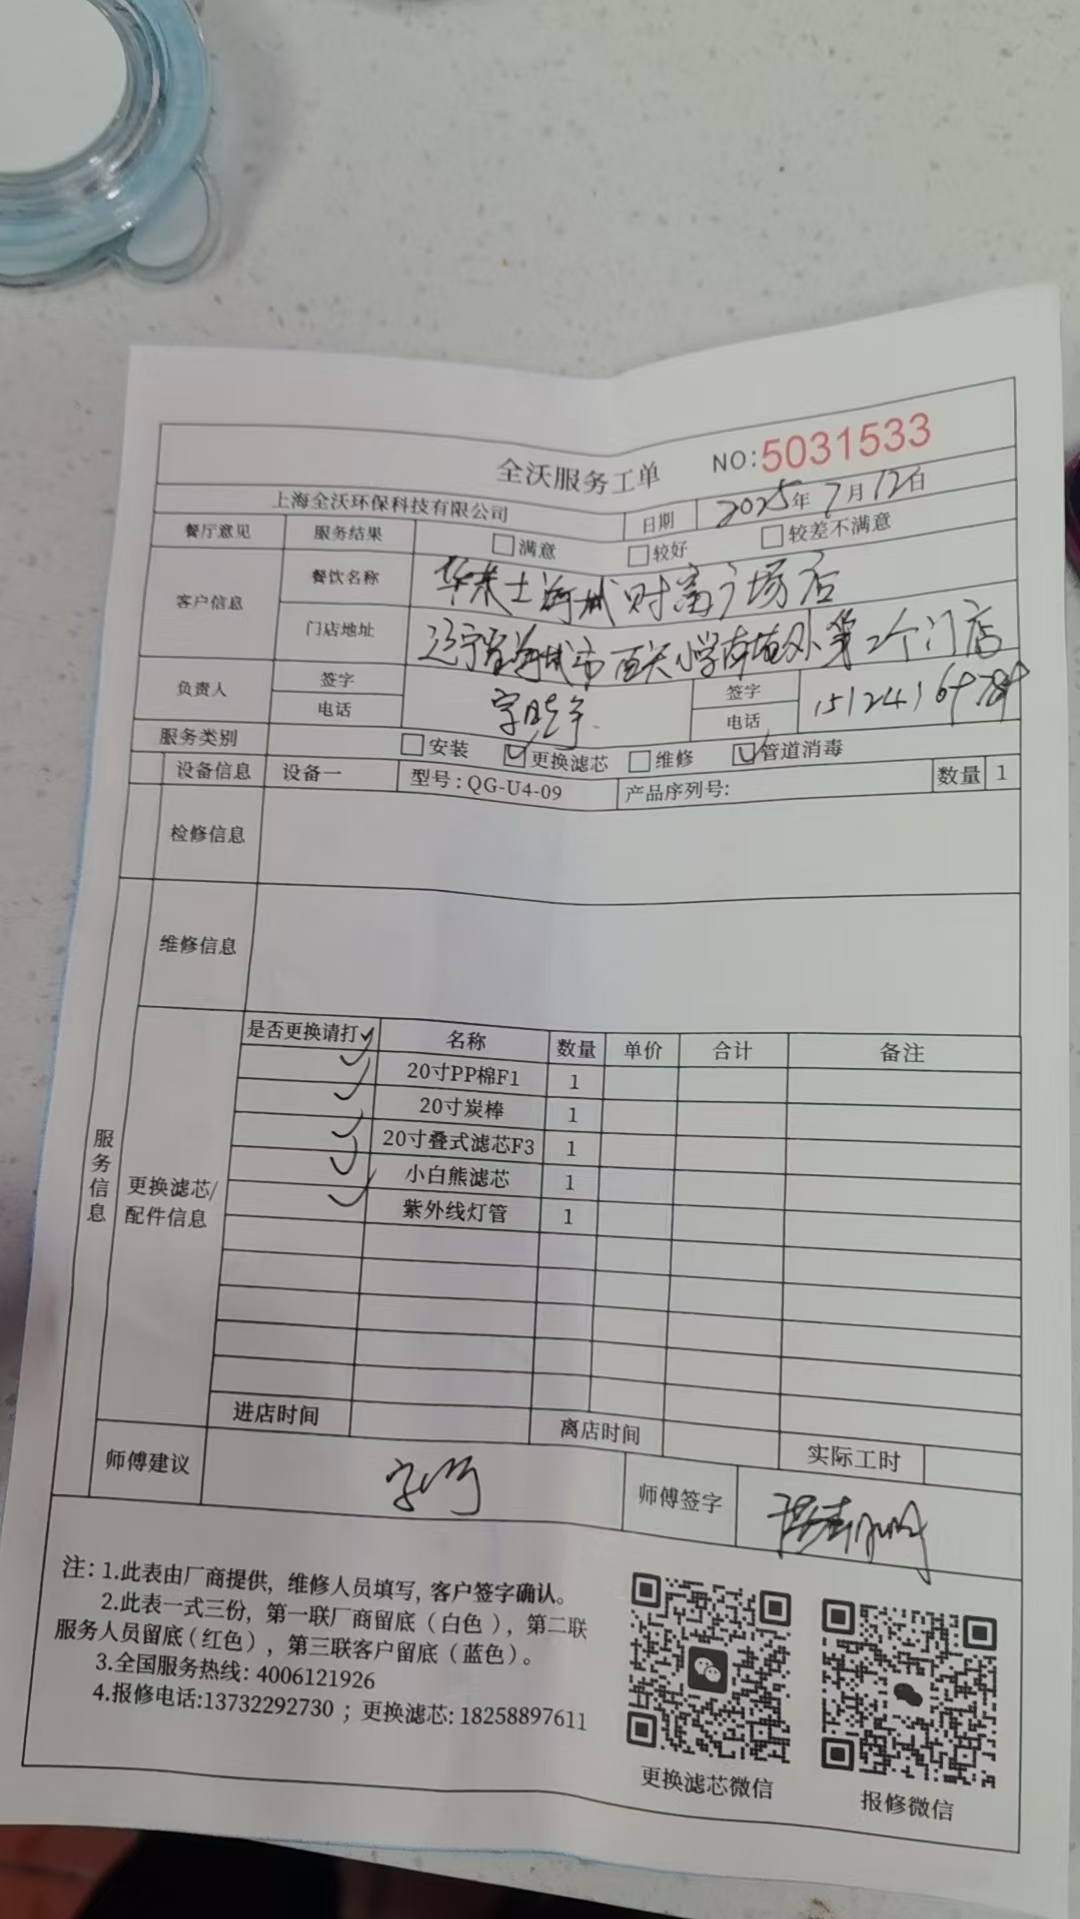 全沃服务工单 NO:5031533
上海全沃环保科技有限公司 日期 2025年7月12日
餐厅意见 服务结果 满意 较好 较差不满意
客户信息 餐饮名称 华莱士海城财富广场店
门店地址 辽宁省海城市 小学南 第二个门店
负责人 签字 签字
电话 电话 151241
服务类别 安装 更换滤芯 维修 管道消毒
设备信息 设备一 型号:QG-U4-09 产品序列号: 数量 1
检修信息
维修信息
服务信息
更换滤芯/
配件信息
是否更换请打✓ 名称 数量 单价 合计 备注
✓ 20寸PP棉F1 1
✓ 20寸炭棒 1
✓ 20寸叠式滤芯F3 1
✓ 小白熊滤芯 1
✓ 紫外线灯管 1
进店时间 离店时间 实际工时
师傅建议 师傅签字
注:1.此表由厂商提供,维修人员填写,客户签字确认。
2.此表一式三份,第一联厂商留底(白色),第二联
服务人员留底(红色),第三联客户留底(蓝色)。
3.全国服务热线:4006121926
4.报修电话:13732292730;更换滤芯:18258897611
更换滤芯微信 报修微信